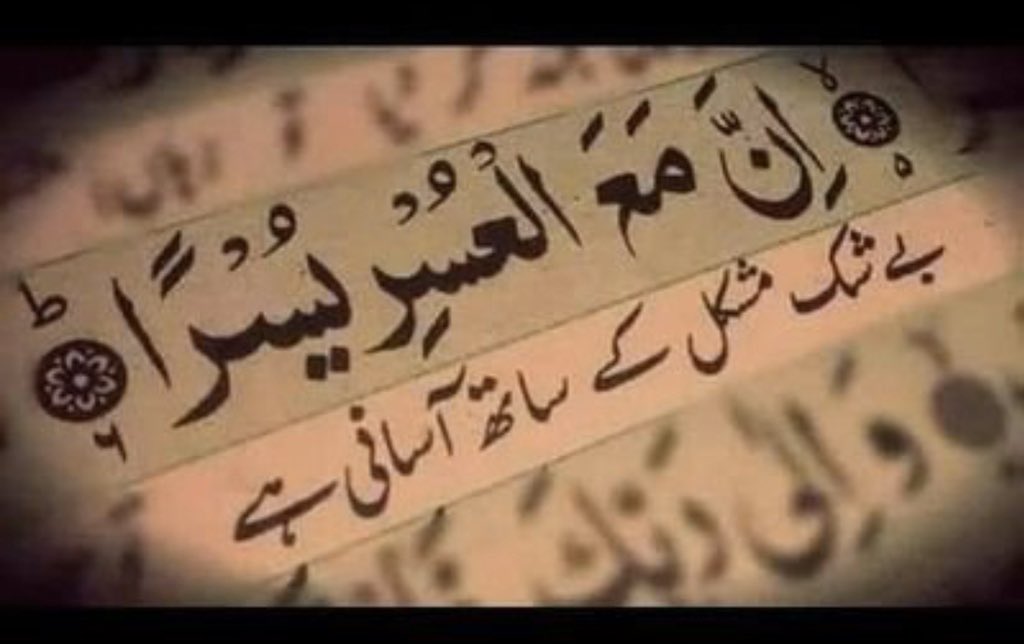 اِنَّ مَعَ الْعُسْرِ يُسْرًا ؕ ۶
بے شک مشکل کے ساتھ آسانی ہے
وَاِلٰى رَبِّكَ